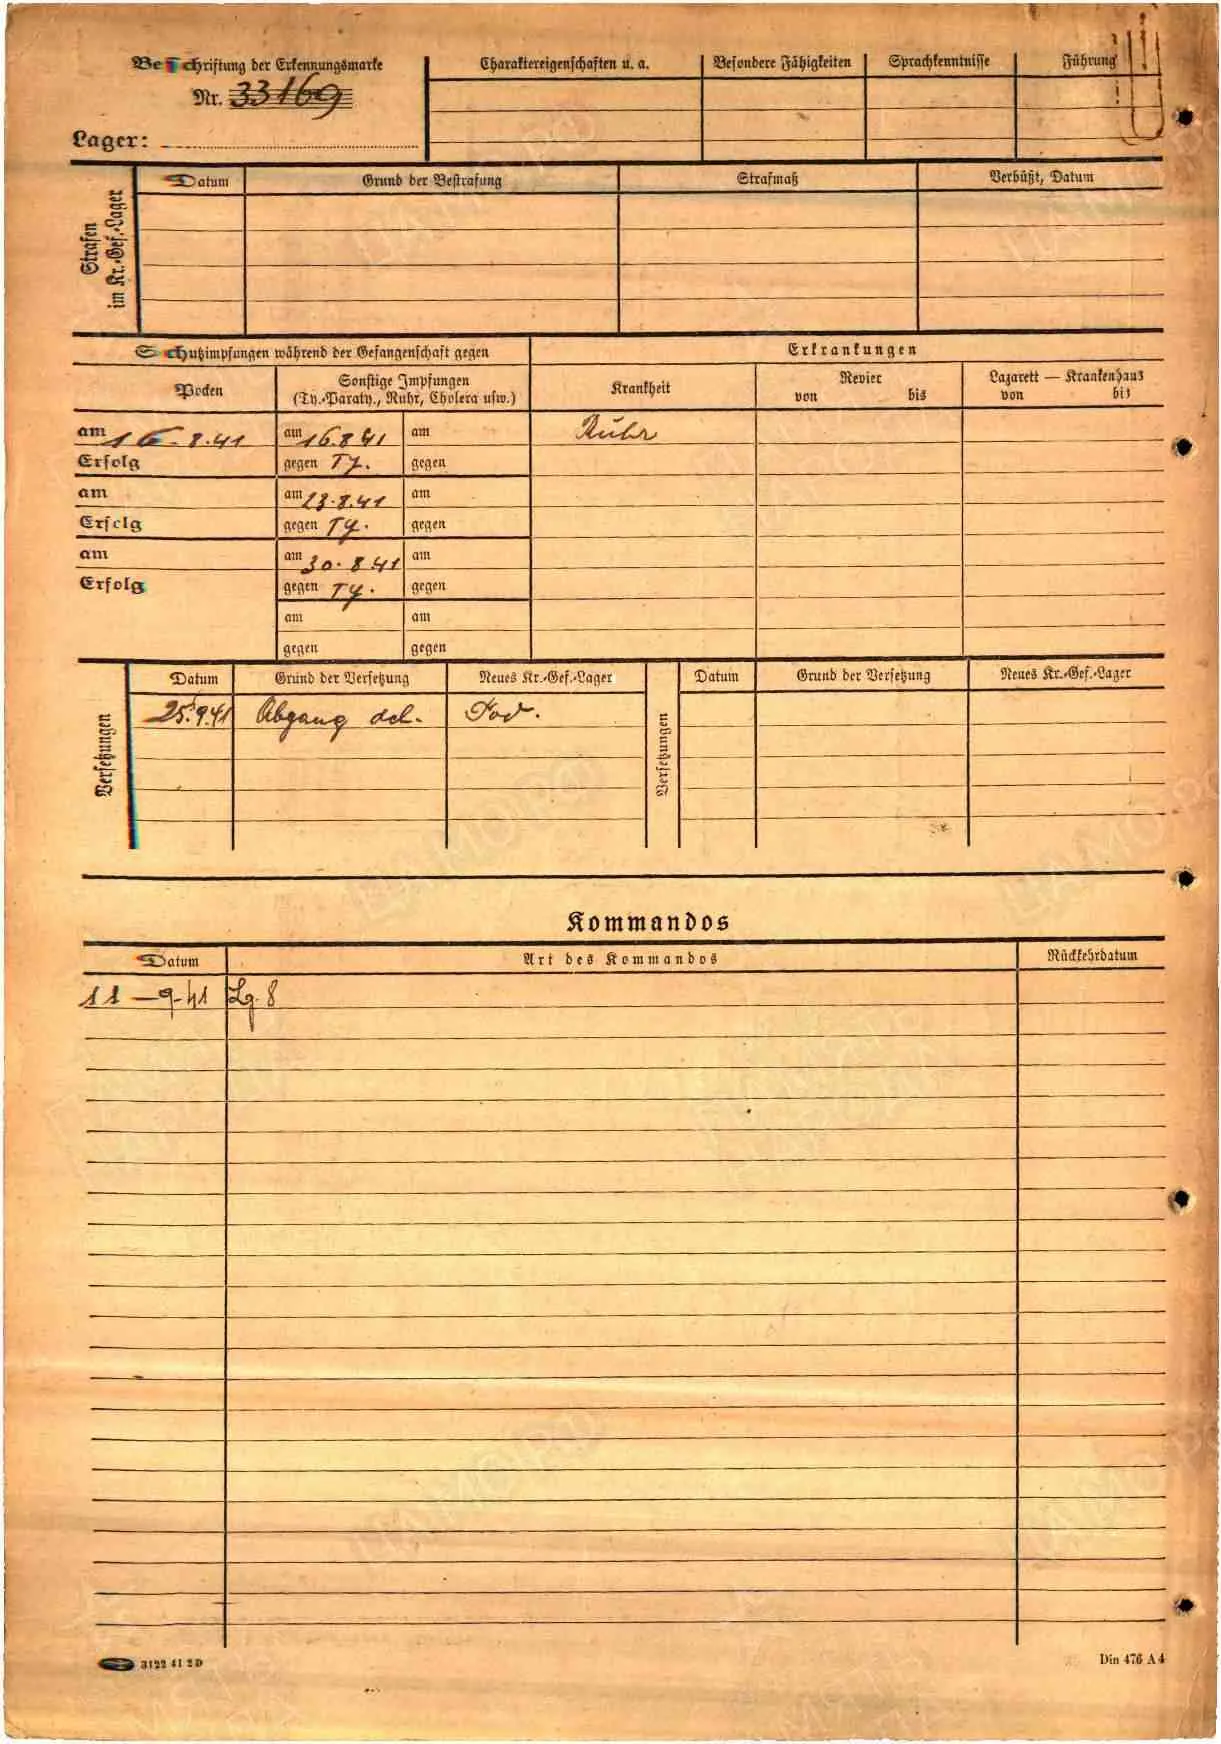 Beschriftung der Erkennungsmarke
Nr. 33169
Lager:
Charaktereigenschaften u. a. Besondere Fähigkeiten Sprachkenntnisse Führung
Strafen
im Kr.-Gef.-Lager
Datum Grund der Bestrafung Strafmaß Verbüßt, Datum
Schutzimpfungen während der Gefangenschaft gegen Erkrankungen
Pocken Sonstige Impfungen
(Ty.-Paraty., Ruhr, Cholera usw.)
Krankheit Revier Lazarett — Krankenhaus
von bis von bis
am 16.8.41 am 16.8.41 am Ruhr
Erfolg gegen Ty. gegen
am am 23.8.41 am
Erfolg gegen Ty. gegen
am am 30.8.41 am
Erfolg gegen Ty. gegen
am am
gegen gegen
Versetzungen
Datum Grund der Versetzung Neues Kr.-Gef.-Lager
25.9.41 Abgang dch. Tod.
Versetzungen
Datum Grund der Versetzung Neues Kr.-Gef.-Lager
Kommandos
Datum Art des Kommandos Rückkehrdatum
11-9-41 Lg. 8
3122 41 2 D Din 476 A 4